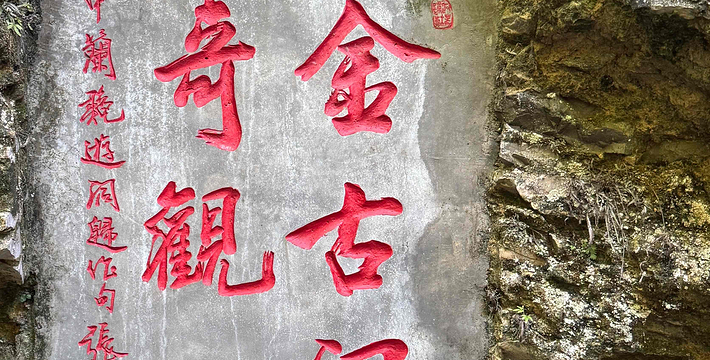 金古
奇觀
蘭晚遊洞歸作句張